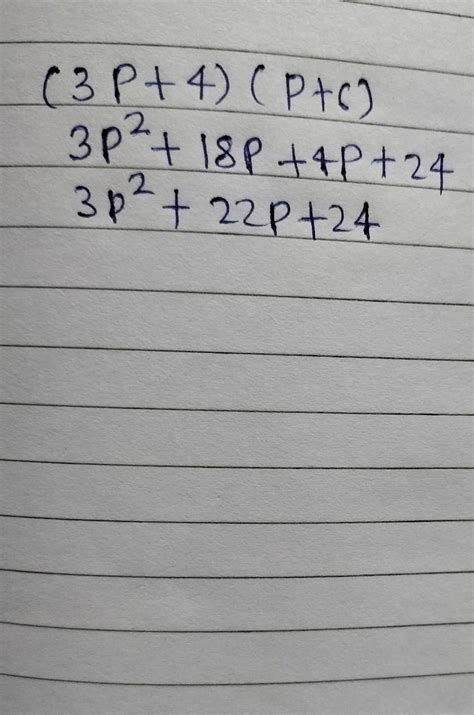 (3P+4)(P+6)
3P²+18P+4P+24
3p²+22P+24